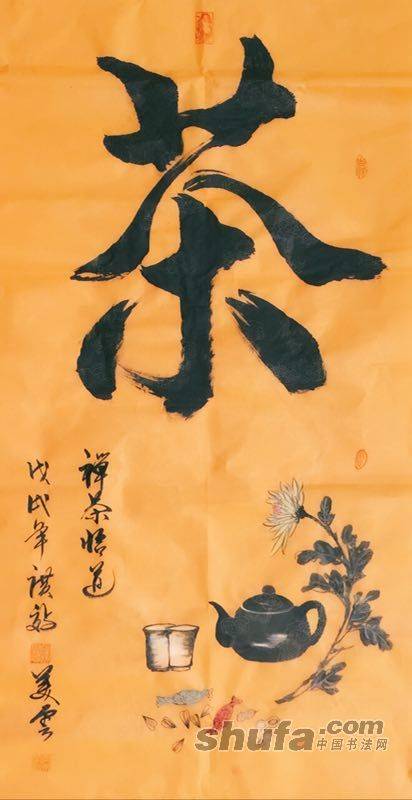 茶
禅茶悟道
戊戌年祺敬
美云
shufa.com
中国书法网